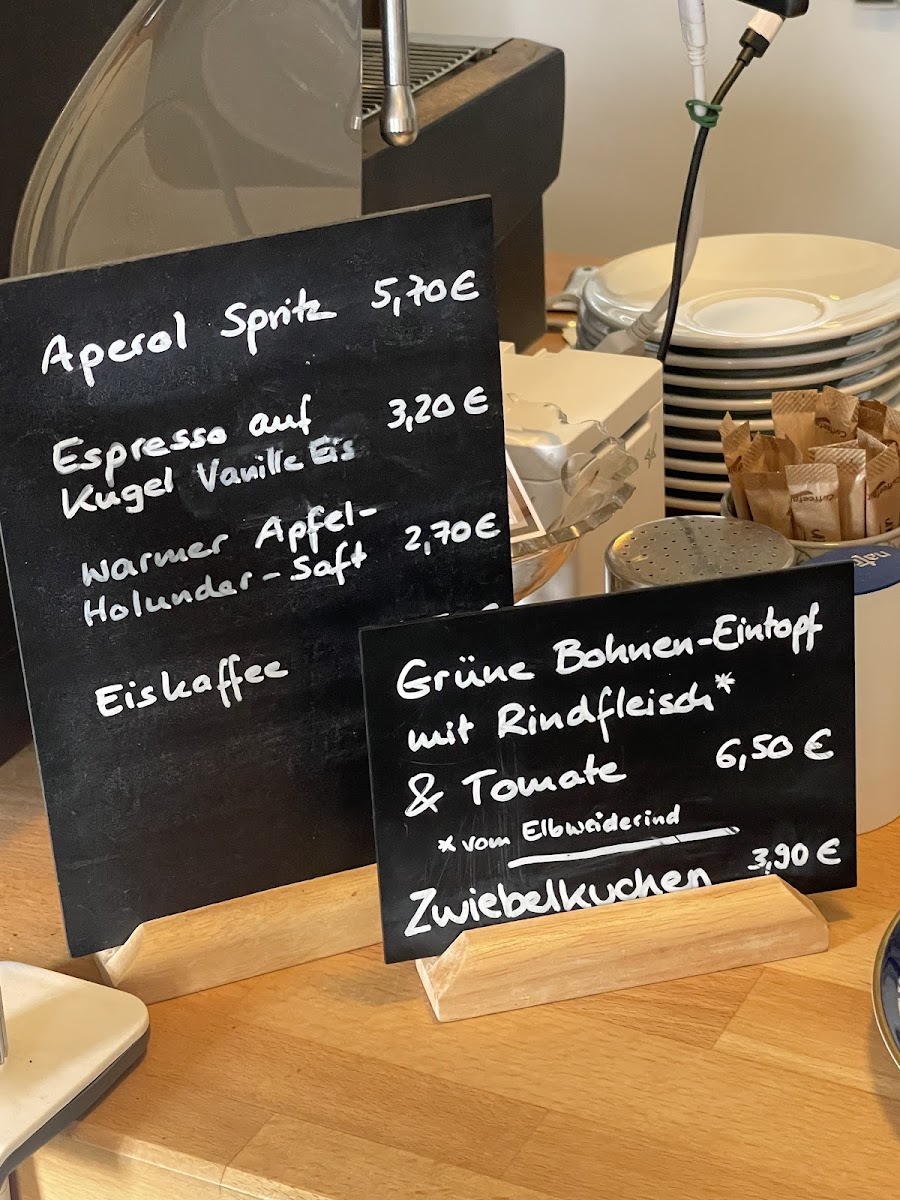 Aperol Spritz 5,70 €
Espresso auf 3,20 €
Kugel Vanille Eis
warmer Apfel-
Holunder-Saft 2,70 €
Eiskaffee
Grüne Bohnen-Eintopf
mit Rindfleisch*
& Tomate 6,50 €
* vom Elbweiderind
Zwiebelkuchen 3,90 €